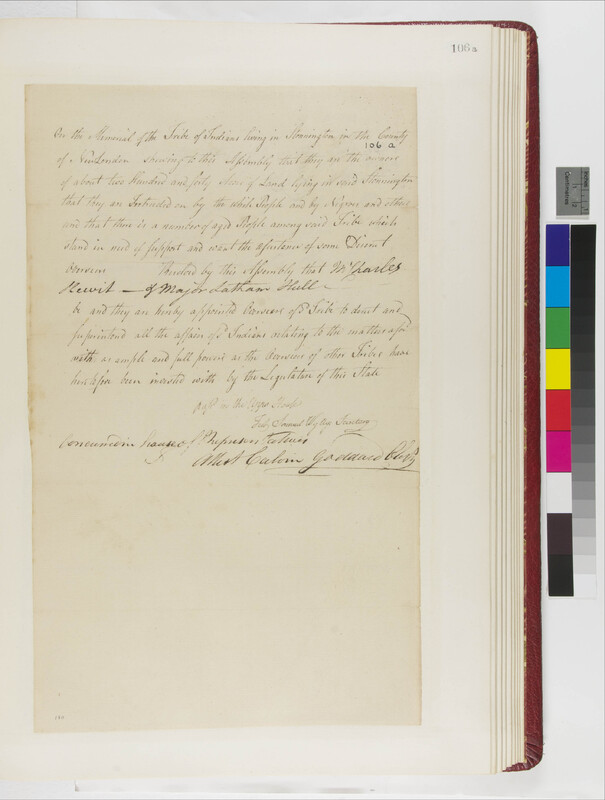 106a
On the Memorial of the Tribe of Indians living in Stonington in the County
106 a
of New London shewing to this Assembly that they are the owners
of about two Hundred and forty Acres of Land lying in said Stonington
that they are Intruded on by the white People and by Negroes and others
and that there is a number of aged People among said Tribe which
stand in need of support and want the assistance of some Discreet
Overseers Resolved by this Assembly that Mr Charles
Hewit & Major Latham Hull
be and they are hereby appointed Overseers of sd Tribe to direct and
superintend all the affairs of sd Indians relating to the matters aforesd
with as ample and full powers as the Overseers of other Tribes have
heretofore been invested with by the Legislature of this State
Passd in the Upper House
Test. Samuel Wyllys Secretary
Concurred in House of Representatives
Attest Calvin Goddard Clerk